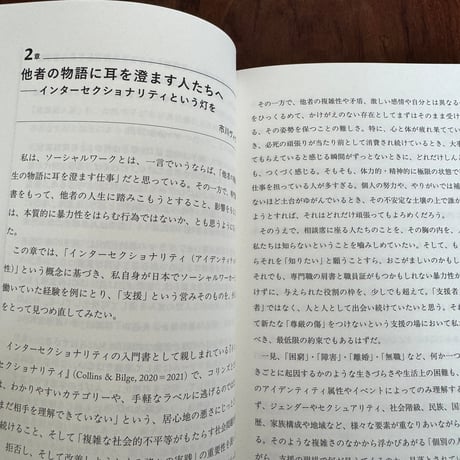 2章
他者の物語に耳を澄ます人たちへ
──インターセクショナリティという灯を
市川ヴィ
私は、ソーシャルワークとは、一言でいうならば、「他者の
生の物語に耳を澄ます仕事」だと思っている。その一方で、専
書をもって、他者の人生に踏みこもうとすること、影響を
は、本質的に暴力性をはらむ行為ではないか、とも思うように
た。
この章では、「インターセクショナリティ（アイデンティテ
性）」という概念に基づき、私自身が日本でソーシャルワーカー
働いていた経験を例にとり、「支援」という営みそのものを、
をとって見つめ直してみたい。
インターセクショナリティの入門書として親しまれている『イ
セクショナリティ』(Collins & Bilge, 2020=2021) で、コリンズと
は、わかりやすいカテゴリーや、手軽なラベルに逃げるのでは
まだ相手を理解できていない」という、居心地の悪さにじっと
続けること、そして「複雑な社会的不平等がもたらす社会問題
拒否し、そして改善しよう
その一方で、他者の複雑性や矛盾、激しい感情や自分とは異なる
をひっくるめて、かけがえのない存在としてまずはそのまま受け
る、その姿勢を保つことの難しさ。特に、心と体が疲れ果ててい
き、必死の頑張りが当たり前として消費され続けているとき、大
れてもらえていると感じる瞬間がずっとないとき、どれだけしん
も、つくづく感じる。そもそも、体力的・精神的に極限の状態で
仕事を担っている人が多すぎる。個人の努力や、やりがいでは補
ないほど土台がゆがんでいるとき、その不安定な土壌の上で誰か
ようとする人は、それどれだけ頑張ってもよろめくだろう。
そのうえで、相談席に座る人たちのことを、その胸の内を、人
私たちは知らないということを噛みしめていたい。そして、も
らそれを「知りたい」と願うことすら、おこがましいのかもしれ
それでも、専門職の肩書と職員証がもつかもしれない暴力性か
けずに、与えられた役割の枠を、少しでも超えて。「支援者
者」ではなく、人と人として出会い続けていたいと思う。それ
て新たな「尊厳の傷」をつけないという支援の場において私
べき、最低限の約束でもあるはずだ。
一見、「困窮」「障害」「離婚」「無職」など、何か一つ
きごとに起因するかのような生きづらさや生活上の困難も、
のアイデンティティ属性やイベントによってのみ理解する
ず、ジェンダーやセクシュアリティ、社会階級、民族、国
歴、家族構成や地域など、様々な要素が重なりあいなが
る。そのような複雑さのなかから浮かびあがる「個別の